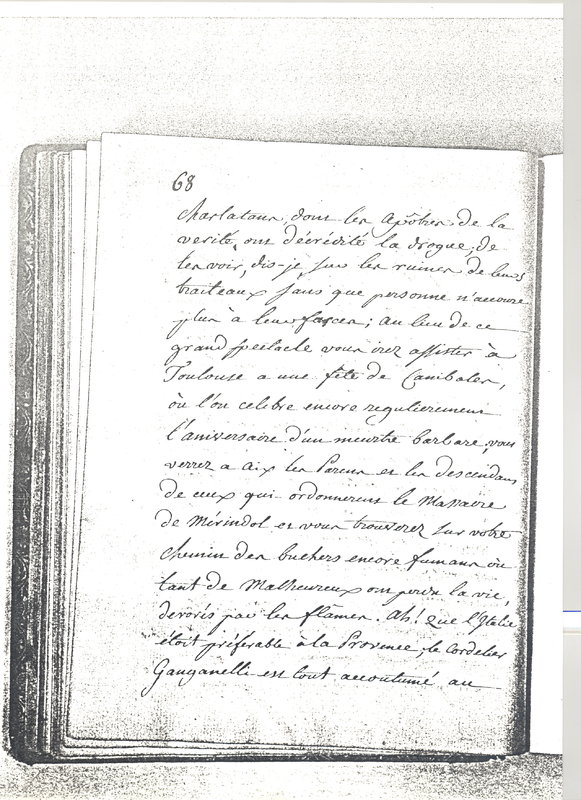 68
Charlatans, dont les Apôtres de la
verité, ont décrédité la drogue; de
les voir, dis-je, sur les ruines de leurs
traiteaux sans que personne n'accoure
plus à leurs farces; au lieu de ce
grand spectacle vous irez assister à
Toulouse a une fête de Canibales,
où l'on celebre encore regulierement
l'aniversaire d'un meurtre barbare, vous
verrez a aix les Parens et les descendans
de ceux qui ordonnerent le Massacre
de Mérindol et vous trouverez sur votre
chemin des buchers encore fumans où
tant de Malheureux ont perdu la vie,
devorés par les flâmes. Ah! que l'Italie
étoit préferable à la Provence; le Cordelier
Ganganelli est tout accoutumé au